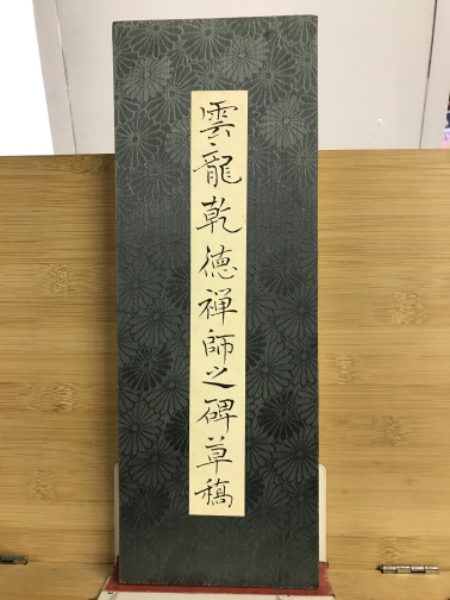 雲龍乾徳禅師之碑草稿